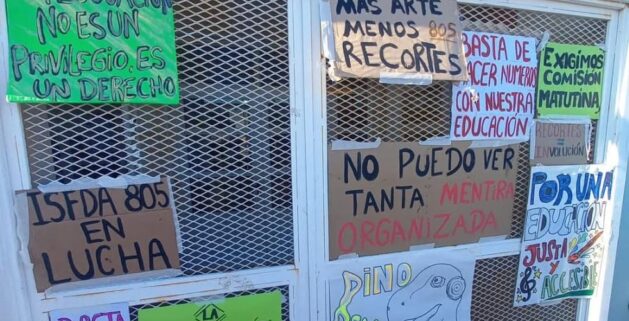 EDUCACIÓN
NO ES UN
PRIVILEGIO, ES
UN DERECHO
MÁS ARTE
MENOS 805
RECORTES
BASTA DE
HACER NUMEROS
CON NUESTRA
EDUCACIÓN
EXIGIMOS
COMISIÓN
MATUTINA
RECORTES
INVOLUCIÓN
ISFDA 805
EN
LUCHA
NO PUEDO VER
TANTA MENTIRA
ORGANIZADA
POR UNA
EDUCACIÓN
JUSTA
Y
ACCESIBLE
DINO
BASTA
LA